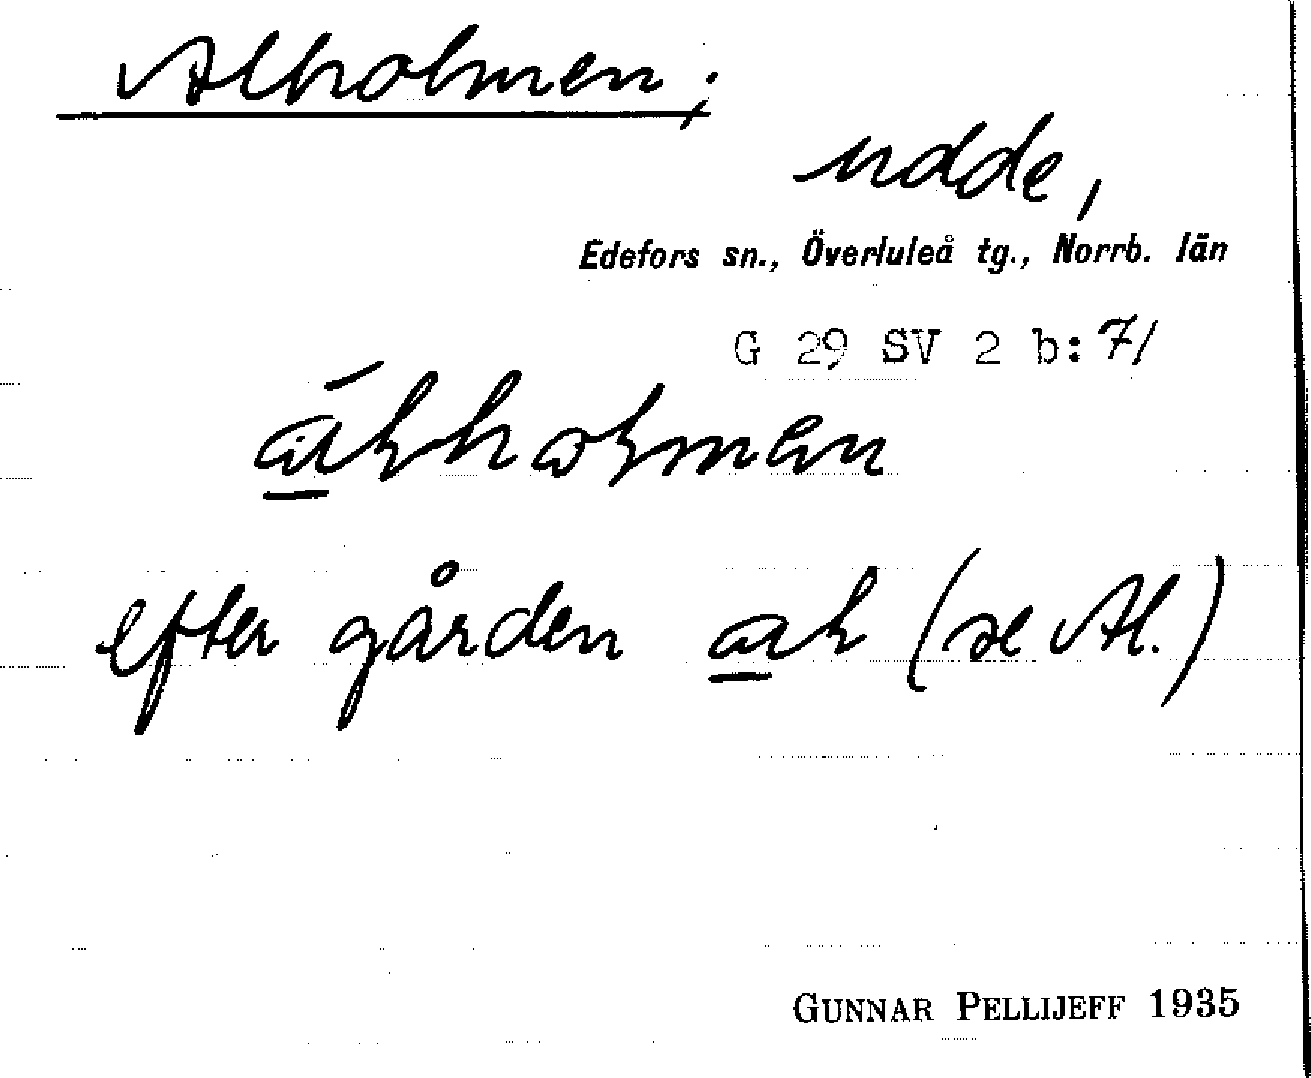 Alholmen,
udde,
Edefors sn., Överluleå tg., Norrb. län
G 29 SV 2 b: 7/
efter gården (se Al.)
GUNNAR PELLIJEFF 1935